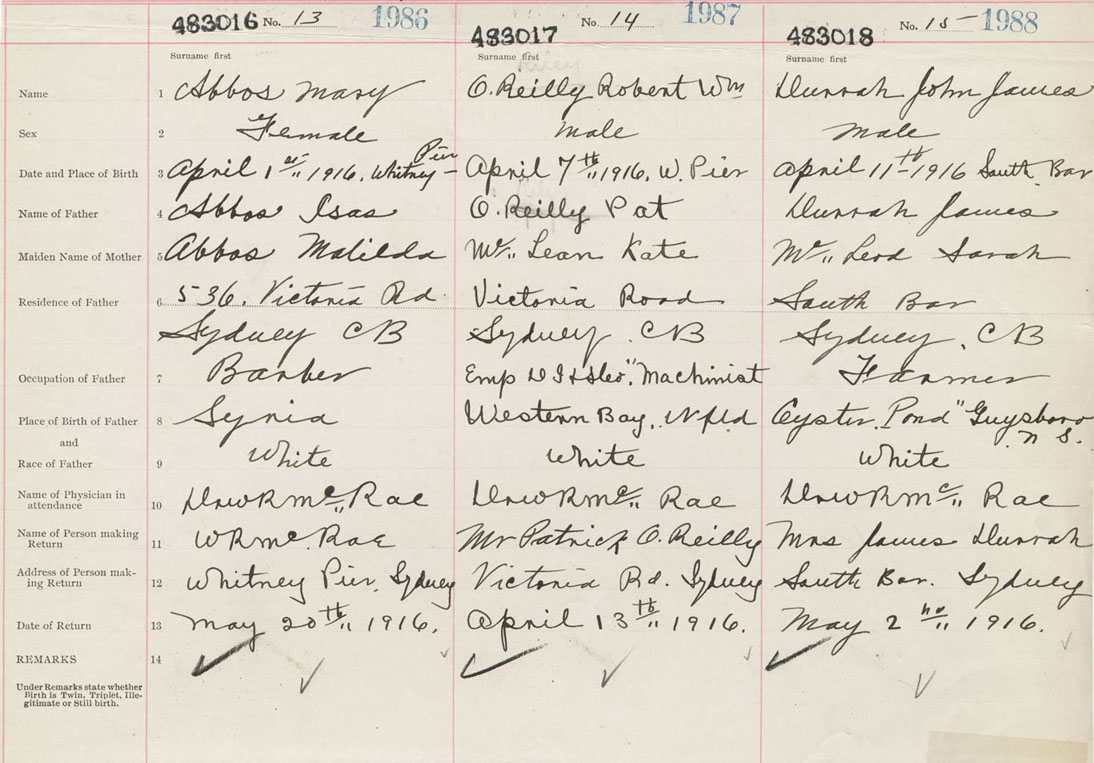 483016 No. 13 1986 483017 No. 14 1987 483018 No. 15 1988
Surname first Surname first Surname first
Name 1 Abbos Mary O.Reilly Robert Wm Durrah John James
Sex 2 Female Male Male
Date and Place of Birth 3 April 1st 1916, Whitney Pier April 7th 1916, W. Pier April 11th 1916 South Bar
Name of Father 4 Abbos Isas O.Reilly Pat Durrah James
Maiden Name of Mother 5 Abbos Matilda Mc Lean Kate Mc Leod Sarah
Residence of Father 6 536, Victoria Rd Victoria Road South Bar
Sydney CB Sydney. CB Sydney, CB
Occupation of Father 7 Barber Emp Machinist Farmer
Place of Birth of Father 8 Syria Western Bay, Nfld Oyster Pond "Guysboro N S.
and
Race of Father 9 White White White
Name of Physician in attendance 10 Dr W R Mc Rae Dr W R Mc Rae Dr W R Mc Rae
Name of Person making Return 11 W R Mc Rae Mr Patrick O.Reilly Mrs James Durrah
Address of Person mak-ing Return 12 Whitney Pier, Sydney Victoria Rd. Sydney South Bar. Sydney
Date of Return 13 May 20th 1916. April 13th 1916. May 2nd 1916.
REMARKS 14
Under Remarks state whether
Birth is Twin, Triplet, Ille-
gitimate or Still birth.